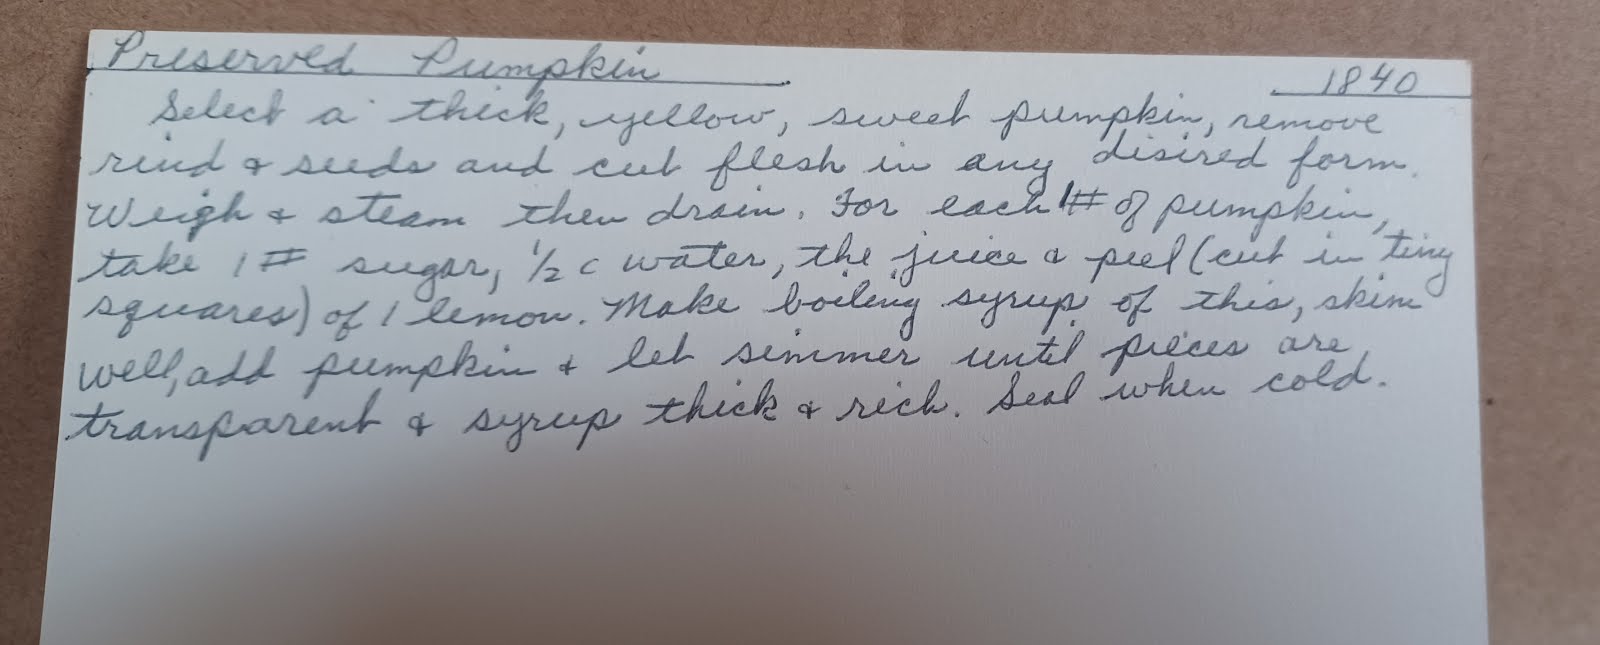 Preserved Pumpkin 1840
Select a thick, yellow, sweet pumpkin, remove
rind & seeds and cut flesh in any disired form.
Weigh & steam then drain. For each 1# of pumpkin,
take 1# sugar, 1/2 c water, the juice & peel (cut in tiny
squares) of 1 lemon. Make boiling syrup of this, skim
well, add pumpkin & let simmer until pieces are
transparent & syrup thick & rich. Seal when cold.